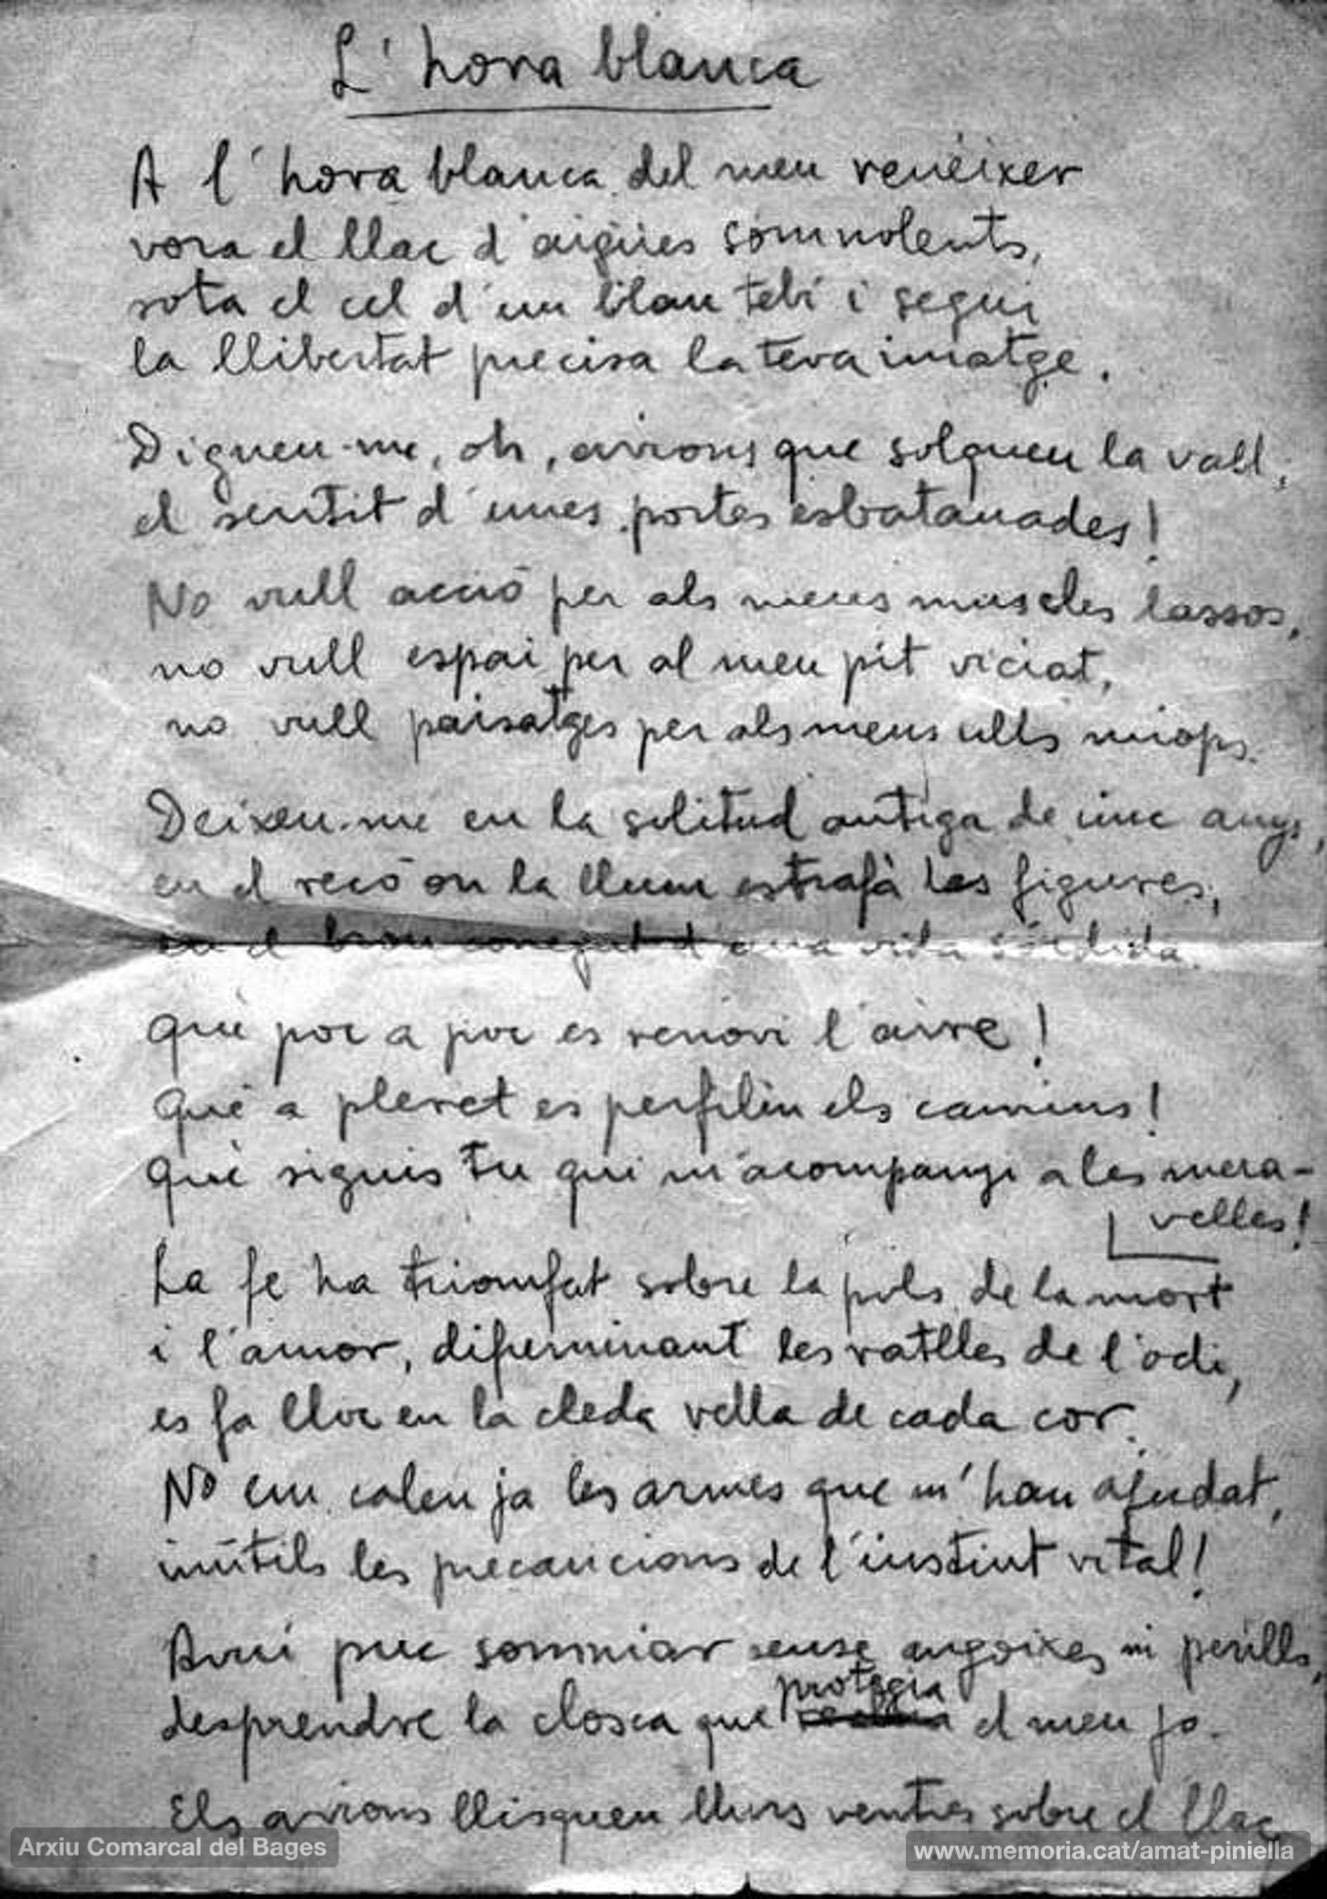 L'hora blanca
A l'hora blanca del meu renéixer
vora el llac d'aigües somnolents,
sota el cel d'un blau tebi i segur
la llibertat precisa la teva imatge.
Digueu-me, oh, avions que solqueu la vall,
el sentit d'unes portes esbatanades!
No vull acció per als meus muscles lassos,
no vull espai per al meu pit viciat,
no vull paisatges per als meus ulls miops.
Deixeu-me en la solitud antiga de cinc anys,
en el recó on la llum estrafà les figures,
en el brou conegut d'una vida sòrdida.
Què poc a poc es renovi l'aire!
Què a pleret es perfilin els camins!
Què siguis tu qui m'acompanyi a les mera-
velles!
La fe ha triomfat sobre la pols de la mort
i l'amor, difuminant les ratlles de l'odi,
es fa lloc en la cleda vella de cada cor.
No em calen ja les armes que m'han ajudat,
inútils les precaucions de l'instint vital!
Avui puc somniar sense angoixes ni perills,
protegia
desprendre la closca que el meu jo.
Els avions llisquen llurs ventres sobre el llac
Arxiu Comarcal del Bages
www.memoria.cat/amat-piniella